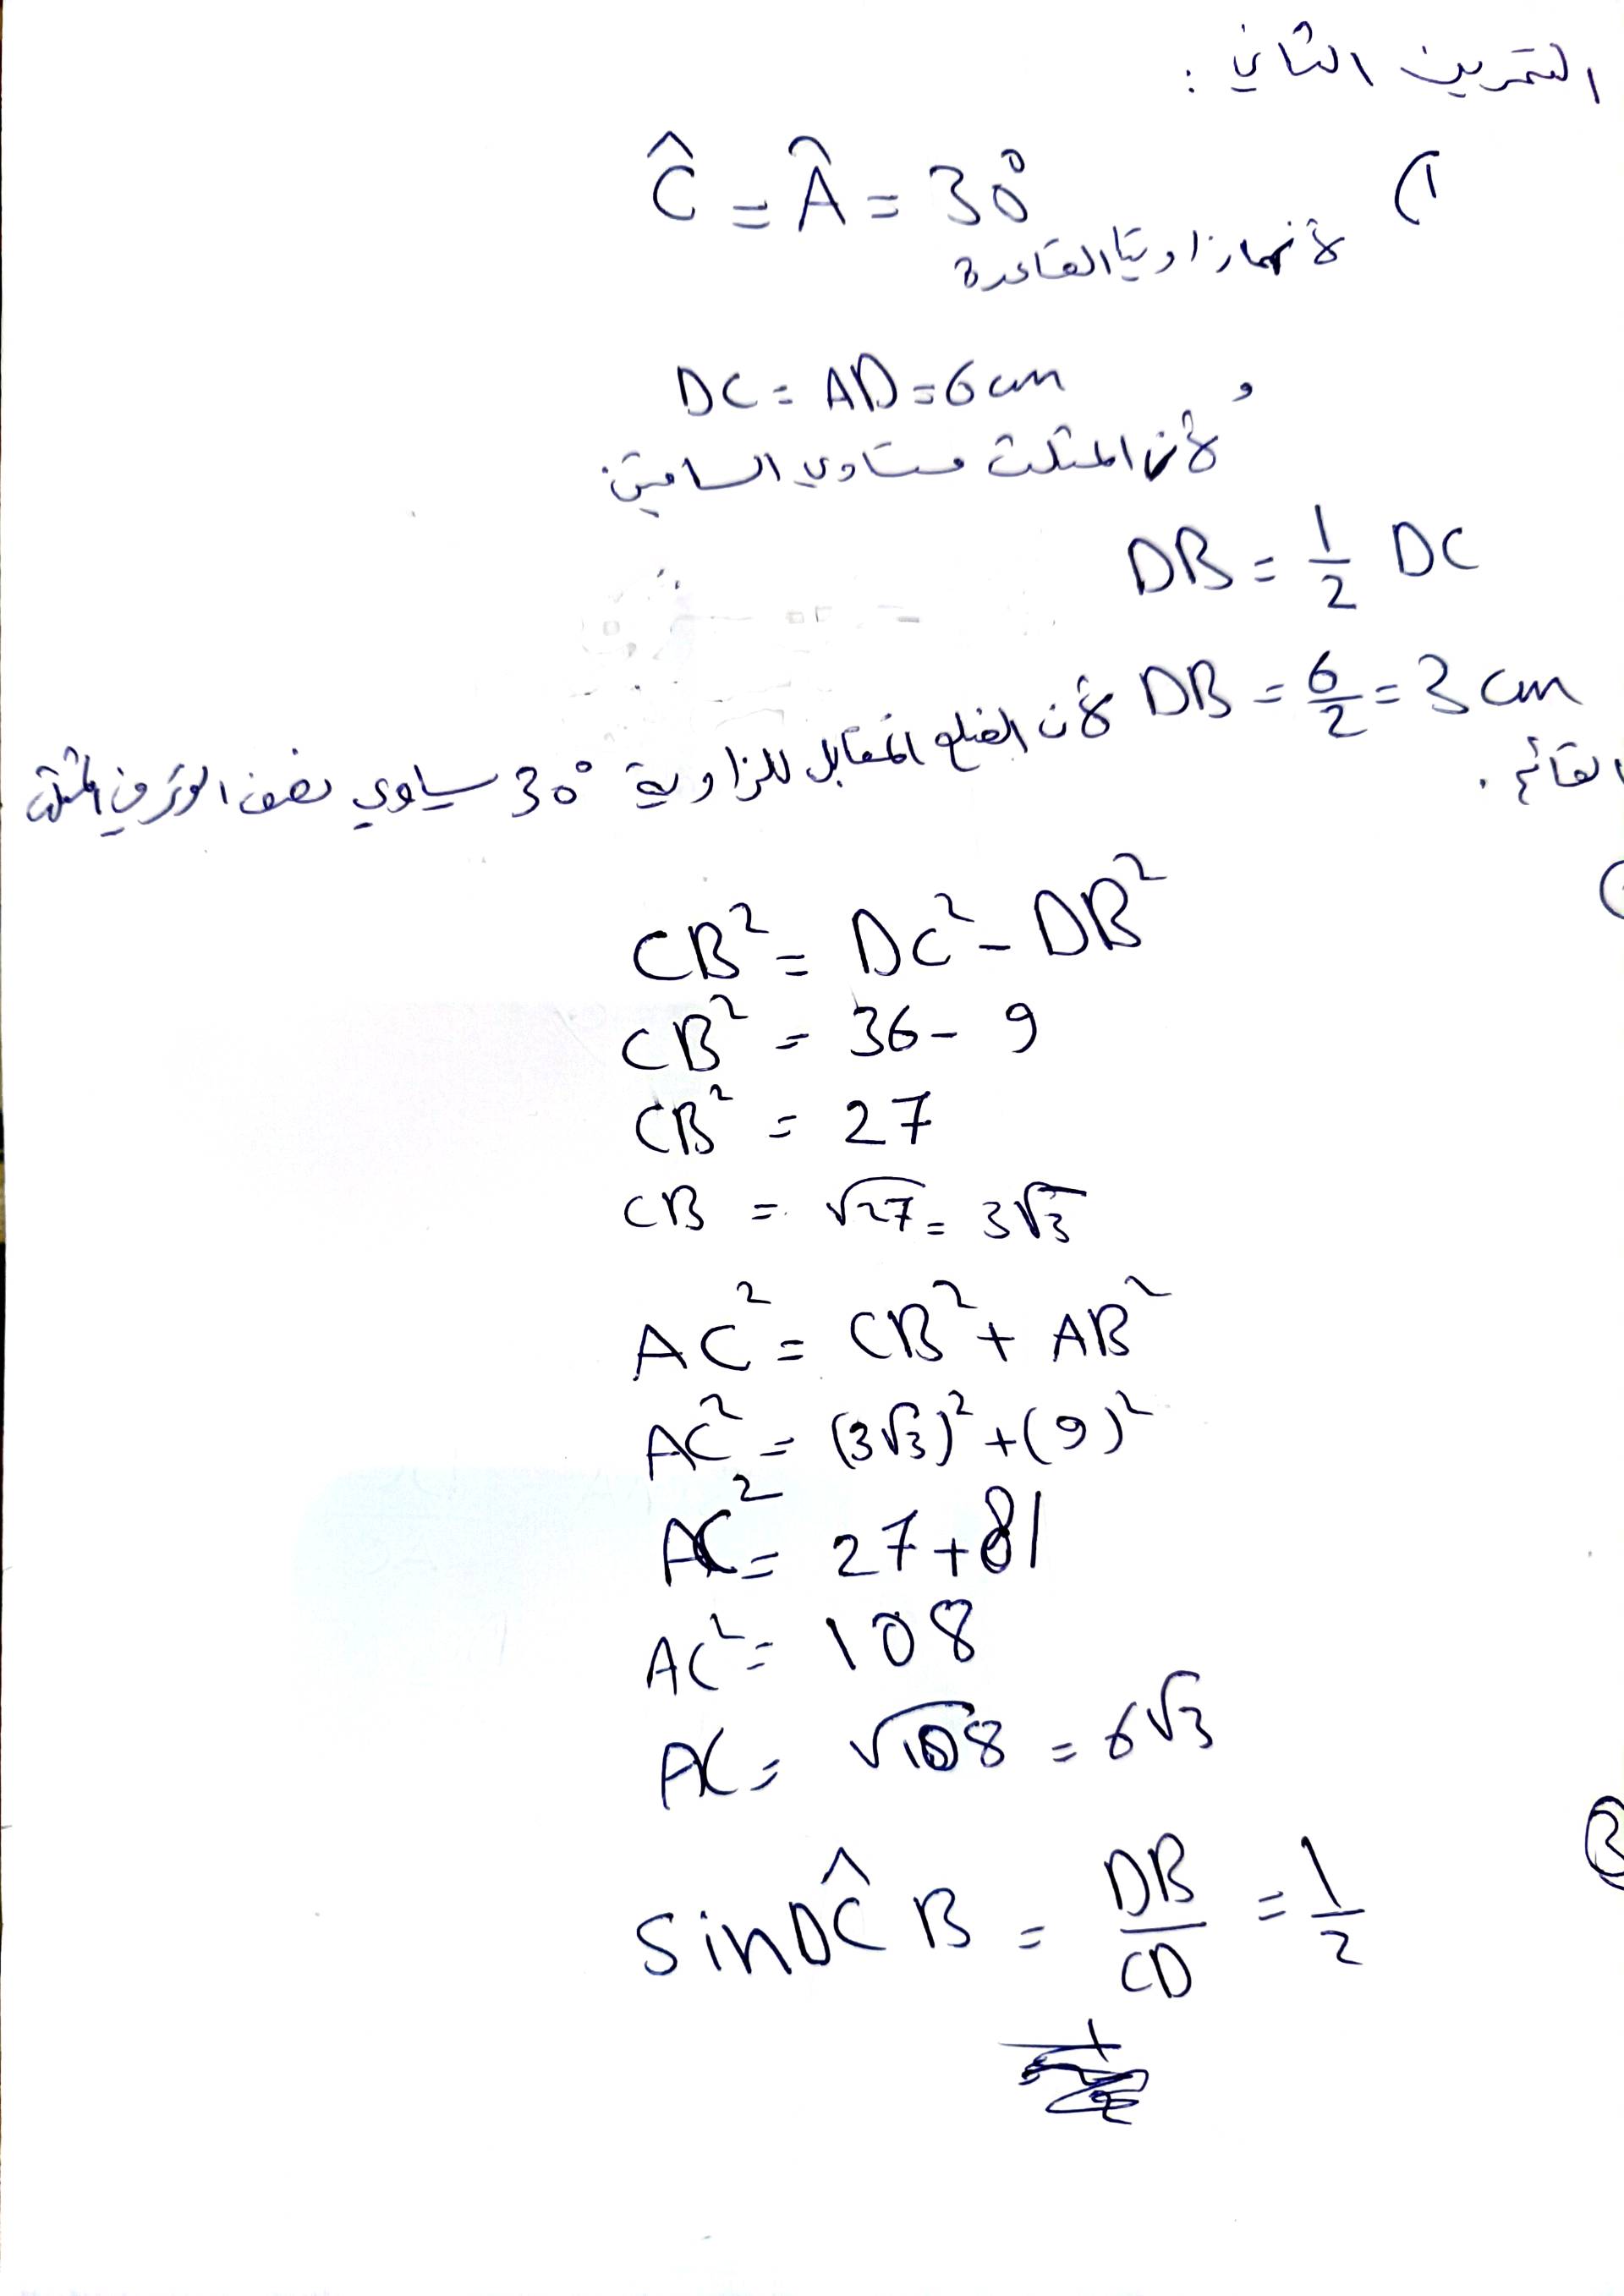 التمرين الثاني :
1) Ĉ = Â = 30°
لأنهما زاويتا القاعدة
و DC = AD = 6 cm
لأن المثلث متساوي الساقين
DB = 1/2 DC
DB = 6/2 = 3 cm
لأن الضلع المقابل للزاوية 30° يساوي نصف الوتر في المثلث
القائم .
CB² = DC² - DB²
CB² = 36 - 9
CB² = 27
CB = √27 = 3√3
AC² = CB² + AB²
AC² = (3√3)² + (9)²
AC² = 27 + 81
AC² = 108
AC = √108 = 6√3
3 sin DĈB = DB/CD = 1/2